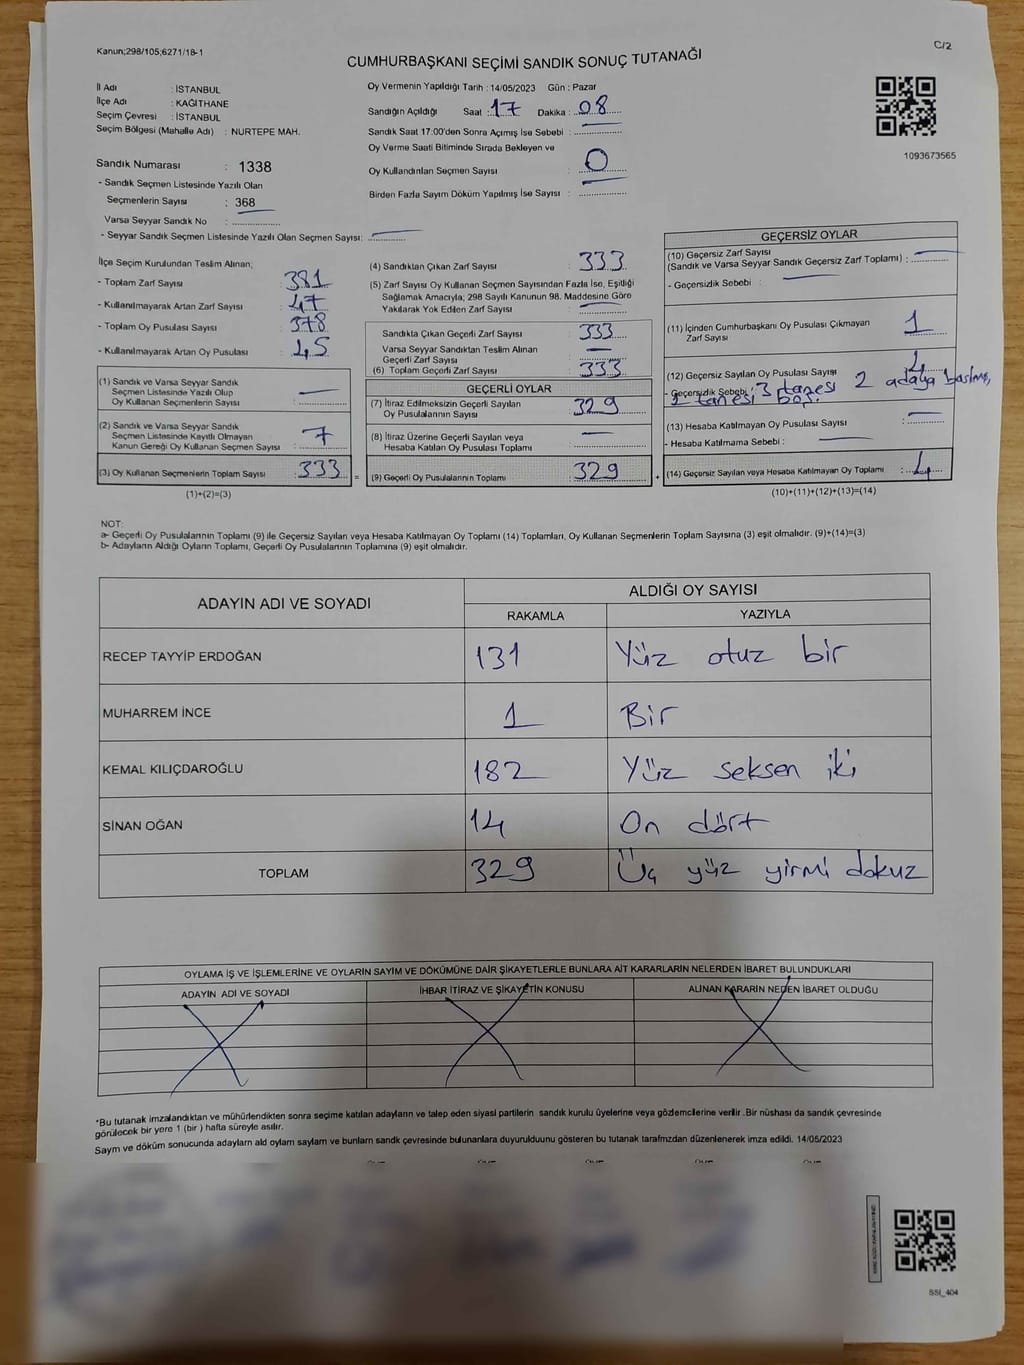 Kanun;298/105;6271/18-1
C/2
CUMHURBAŞKANI SEÇİMİ SANDIK SONUÇ TUTANAĞI
İl Adı : İSTANBUL
İlçe Adı : KAĞITHANE
Seçim Çevresi : İSTANBUL
Seçim Bölgesi (Mahalle Adı) : NURTEPE MAH.
Oy Vermenin Yapıldığı Tarih : 14/05/2023 Gün : Pazar
Sandığın Açıldığı Saat : 17 Dakika : 08
Sandık Saat 17:00'den Sonra Açımış İse Sebebi :
Oy Verme Saati Bitiminde Sırada Bekleyen ve
Oy Kullandırılan Seçmen Sayısı : 0
Birden Fazla Sayım Döküm Yapılmış İse Sayısı :
1093673565
Sandık Numarası : 1338
- Sandık Seçmen Listesinde Yazılı Olan
Seçmenlerin Sayısı : 368
Varsa Seyyar Sandık No :
- Seyyar Sandık Seçmen Listesinde Yazılı Olan Seçmen Sayısı:
İlçe Seçim Kurulundan Teslim Alınan;
- Toplam Zarf Sayısı : 381
- Kullanılmayarak Artan Zarf Sayısı : 47
- Toplam Oy Pusulası Sayısı : 378
- Kullanılmayarak Artan Oy Pusulası : 45
(1) Sandık ve Varsa Seyyar Sandık
Seçmen Listesinde Yazılı Olup
Oy Kullanan Seçmenlerin Sayısı :
(2) Sandık ve Varsa Seyyar Sandık
Seçmen Listesinde Kayıtlı Olmayan
Kanun Gereği Oy Kullanan Seçmen Sayısı : 7
(3) Oy Kullanan Seçmenlerin Toplam Sayısı : 333
(1)+(2)=(3)
(4) Sandıktan Çıkan Zarf Sayısı : 333
(5) Zarf Sayısı Oy Kullanan Seçmen Sayısından Fazla İse, Eşitliği
Sağlamak Amacıyla; 298 Sayılı Kanunun 98. Maddesine Göre
Yakılarak Yok Edilen Zarf Sayısı :
Sandıkta Çıkan Geçerli Zarf Sayısı : 333
Varsa Seyyar Sandıktan Teslim Alınan
Geçerli Zarf Sayısı :
(6) Toplam Geçerli Zarf Sayısı : 333
GEÇERLİ OYLAR
(7) İtiraz Edilmeksizin Geçerli Sayılan
Oy Pusulalarının Sayısı : 329
(8) İtiraz Üzerine Geçerli Sayılan veya
Hesaba Katılan Oy Pusulası Toplamı :
(9) Geçerli Oy Pusulalarının Toplamı : 329
GEÇERSİZ OYLAR
(10) Geçersiz Zarf Sayısı
(Sandık ve Varsa Seyyar Sandık Geçersiz Zarf Toplamı) :
- Geçersizlik Sebebi :
(11) İçinden Cumhurbaşkanı Oy Pusulası Çıkmayan
Zarf Sayısı : 1
(12) Geçersiz Sayılan Oy Pusulası Sayısı
- Geçersizlik Sebebi: 3 tanesi 2 adaya basılmış,
1 tanesi boş.
(13) Hesaba Katılmayan Oy Pusulası Sayısı :
- Hesaba Katılmama Sebebi :
(14) Geçersiz Sayılan veya Hesaba Katılmayan Oy Toplamı : 4
(10)+(11)+(12)+(13)=(14)
NOT:
a- Geçerli Oy Pusulalarının Toplamı (9) ile Geçersiz Sayılan veya Hesaba Katılmayan Oy Toplamı (14) Toplamları, Oy Kullanan Seçmenlerin Toplam Sayısına (3) eşit olmalıdır. (9)+(14)=(3)
b- Adayların Aldığı Oyların Toplamı, Geçerli Oy Pusulalarının Toplamına (9) eşit olmalıdır.
ADAYIN ADI VE SOYADI
ALDIĞI OY SAYISI
RAKAMLA YAZIYLA
RECEP TAYYİP ERDOĞAN 131 Yüz otuz bir
MUHARREM İNCE 1 Bir
KEMAL KILIÇDAROĞLU 182 Yüz seksen iki
SİNAN OĞAN 14 On dört
TOPLAM 329 Üç yüz yirmi dokuz
OYLAMA İŞ VE İŞLEMLERİNE VE OYLARIN SAYIM VE DÖKÜMÜNE DAİR ŞİKAYETLERLE BUNLARA AİT KARARLARIN NELERDEN İBARET BULUNDUKLARI
ADAYIN ADI VE SOYADI
İHBAR İTİRAZ VE ŞİKAYETİN KONUSU
ALINAN KARARIN NEDEN İBARET OLDUĞU
*Bu tutanak imzalandıktan ve mühürlendikten sonra seçime katılan adayların ve talep eden siyasi partilerin sandık kurulu üyelerine veya gözlemcilerine verilir. Bir nüshası da sandık çevresinde
görülecek bir yere 1 (bir ) hafta süreyle asılır.
Sayım ve döküm sonucunda adayların ald oyların saylam ve bunların sandık çevresinde bulunanlara duyurulduunu gösteren bu tutanak tarafmzdan düzenlenerek imza edildi. 14/05/2023
SSI_404